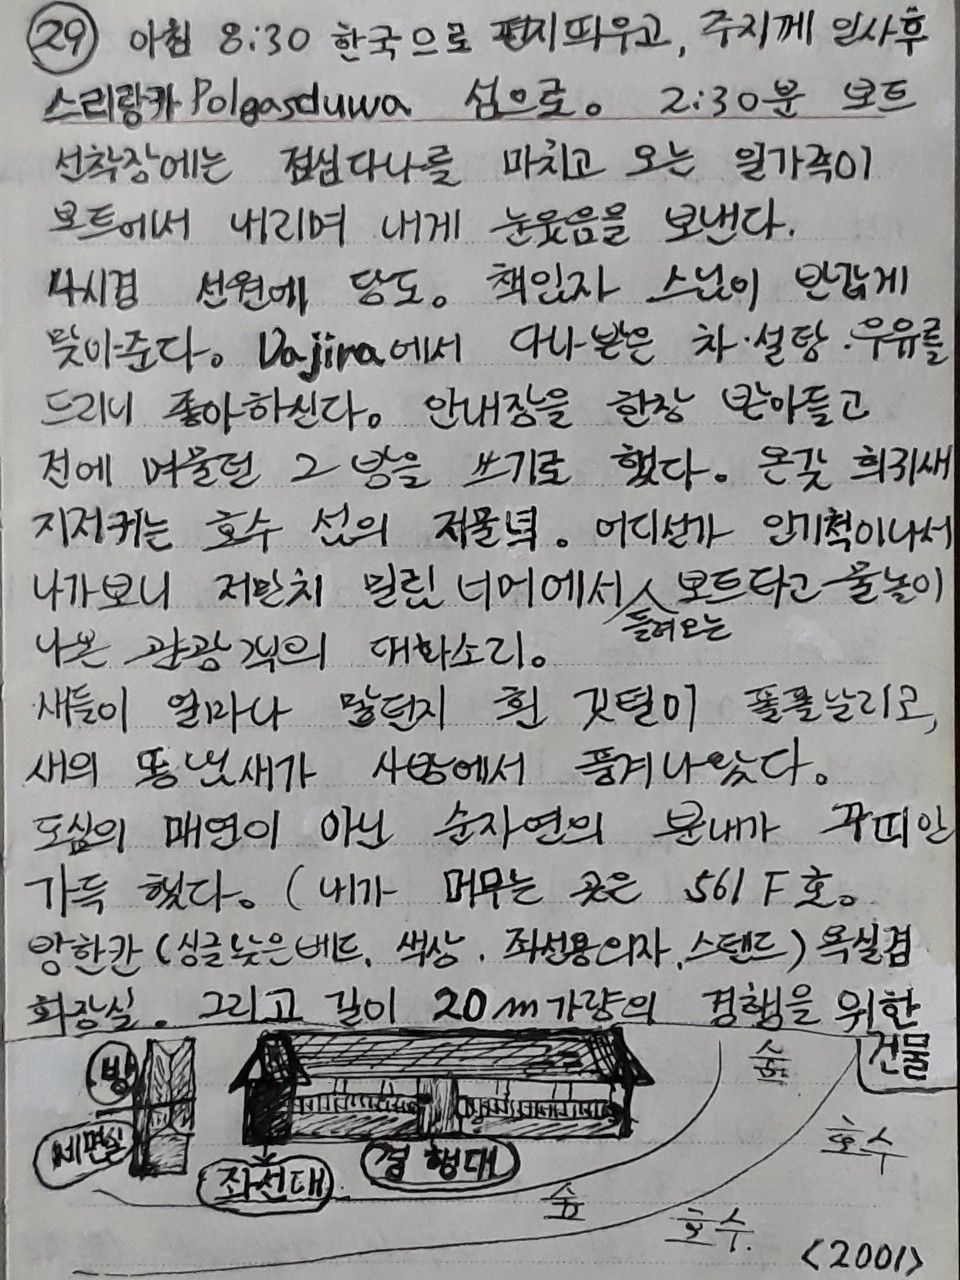 29 아침 8:30 한국으로 편지띄우고, 주지께 인사후
스리랑카 Polgasduwa 섬으로. 2:30분 보트
선착장에는 점심다나를 마치고 오는 일가족이
보트에서 내리며 내게 눈웃음을 보낸다.
4시경 선원에 당도. 책임자 스님이 반갑게
맞아준다. Vajira에서 다나받은 차·설탕·우유를
드리니 좋아하신다. 안내장을 한장 받아들고
전에 머물던 그 방을 쓰기로 했다. 온갖 희귀새
지저귀는 호수 섬의 저물녘. 어디선가 인기척이나서
나가보니 저만치 밀림 너머에서 들려오는 보트타고 물놀이
나온 관광객의 대화소리.
새들이 얼마나 많던지 흰 깃털이 폴폴날리고,
새의 똥냄새가 사방에서 풍겨나왔다.
도심의 매연이 아닌 순자연의 분내가 꾸띠안
가득 했다. (내가 머무는 곳은 561F호.
방한칸(싱글낮은베드, 책상, 좌선용의자, 스텐드) 욕실겸
화장실. 그리고 길이 20m가량의 경행을 위한
건물
방
세면실
좌선대
경행대
숲
호수
숲
호수.
<2001>